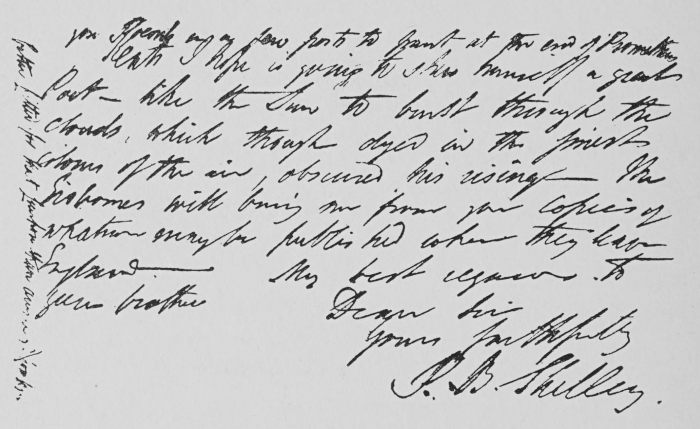 you speak in my few posts to print at the end of Prometheus
Keats I hope is going to show himself a great
Poet – like the Sun to burst through the
clouds, which though dyed in the finest
colours of the air, obscured his rising – The
Gisbornes will bring me from you copies of
whatever may be published when they leave
England – My best regards to
your brother
Dear Sir
Yours faithfully
P. B. Shelley.
better fitted for that